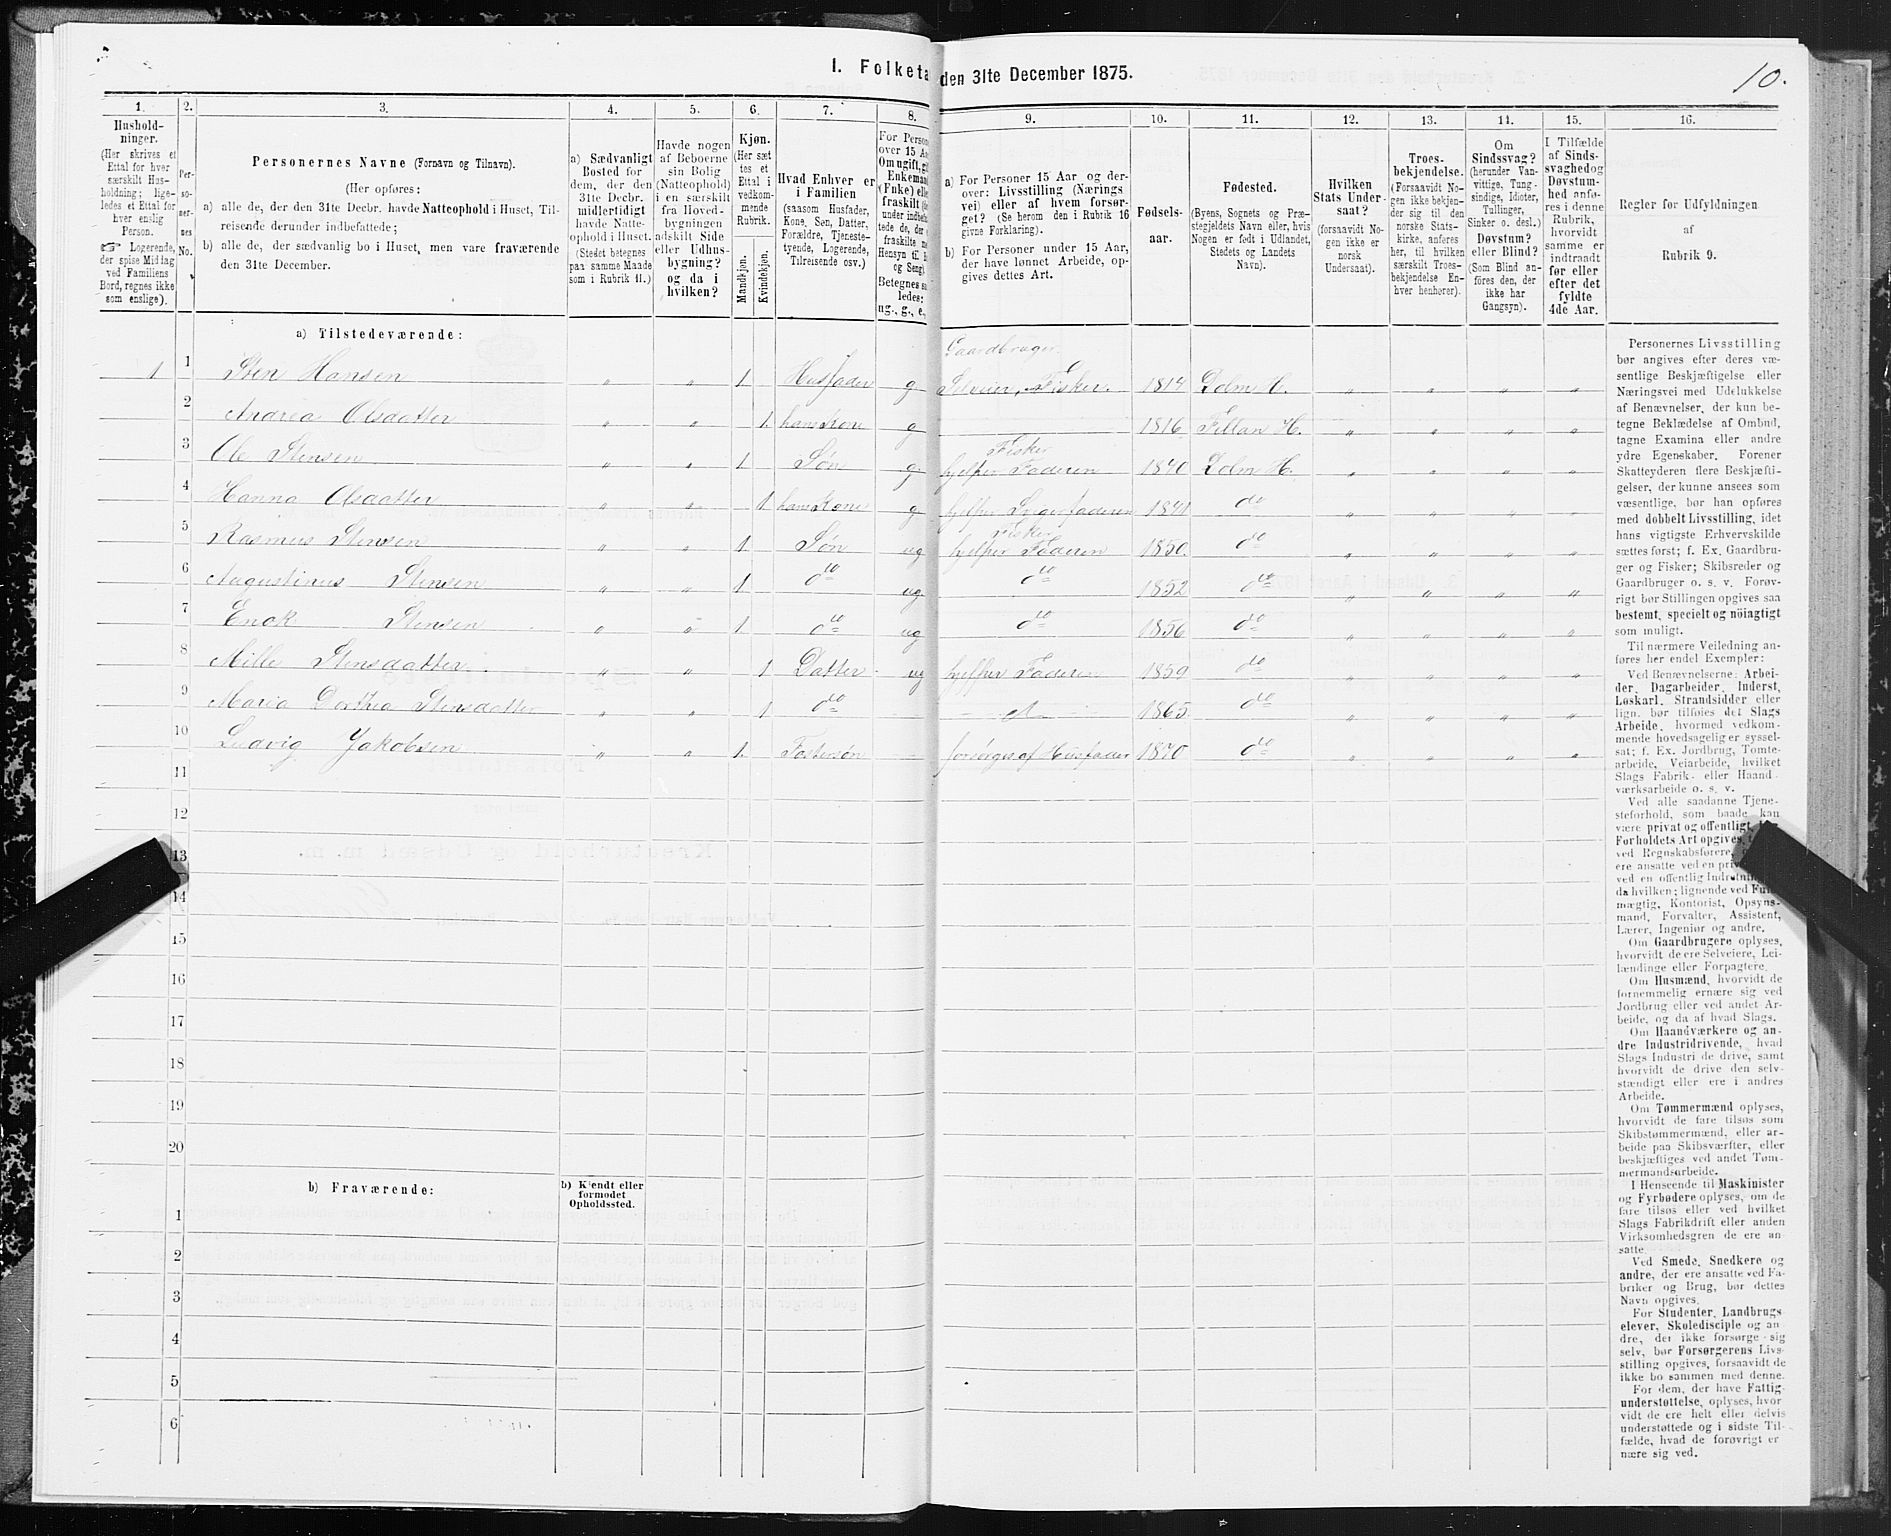 I. Folketa den 31te December 1875.
10.
1. 2. 3. 4. 5. 6. 7. 8. 9. 10. 11. 12. 13. 14. 15. 16.
Hushold-
ninger.
(Her skrives et
Ettal for hver
særskilt Hus-
holdning; lige-
ledes et Ettal for
hver enslig
Person.
☞ Logerende,
der spise Middag
ved Familiens
Bord, regnes ikke
som enslige).
Per-
so-
ner-
nes
No.
Personernes Navne (Fornavn og Tilnavn).
(Her opføres:
a) alle de, der den 31te Decbr. havde Natteophold i Huset, Til-
reisende derunder indbefattede;
b) alle de, der sædvanlig bo i Huset, men vare fraværende
den 31te December.
a) Sædvanligt
Bosted for
dem, der den
31te Decbr.
midlertidigt
havde Natte-
ophold i Huset.
(Stedet betegnes
paa samme Maade
som i Rubrik 11.)
Havde nogen
af Beboerne
sin Bolig
(Natteophold)
i en særskilt
fra Hoved-
bygningen
adskilt Side
eller Udhus-
bygning?
og da i
hvilken?
Kjøn.
(Her sæt
tes et
Ettal i
vedkom-
mende
Rubrik.
Mandkjøn.
Kvindekjøn.
Hvad Enhver er
i Familien
(saasom Husfader,
Kone, Søn, Datter,
Forældre, Tjeneste-
tyende, Logerende,
Tilreisende osv.)
For Perso
over 15 A
Om ugift, gi
Enkeman
(Enke) ell
fraskilt
under indbe
tede de, der
fraskilte
Hensyn til
og Seng).
Betegnes sa
ledes:
ug., g., e.,
a) For Personer 15 Aar og der-
over: Livsstilling (Nærings
vei) eller af hvem forsør-
get? (Se herom den i Rubrik 16
givne Forklaring).
b) For Personer under 15 Aar,
der have lønnet Arbeide, op-
gives dettes Art.
Fødsels-
aar.
Fødested.
(Byens, Sognets og Præ-
stegjeldets Navn eller, hvis
Nogen er født i Udlandet,
Stedets og Landets
Navn).
Hvilken
Stats Under-
saat?
(forsaavidt No-
gen ikke er
norsk
Undersaat).
Troes-
bekjendelse.
(Forsaavidt No-
gen ikke bekjen-
der sig til den
norske Stats-
kirke, anføres
her, til hvilken
særskilt Troes-
bekjendelse En-
hver henhører).
Om
Sindssvag?
(herunder Van-
vittige, Tung-
sindige, Idioter,
Tullinger,
Sinker o. desl.)
Døvstum?
eller Blind?
(Som Blind an-
føres den, der
ikke har
Gangsyn).
I Tilfælde
af Sinds-
svaghed og
Døvstum-
hed anfø-
res i denne
Rubrik,
hvorvidt
samme er
indtraadt
før eller
efter det
fyldte
4de Aar.
Regler for Udfyldningen
af
Rubrik 9.
a) Tilstedeværende:
Gaardbruger
1 1 Sten Hansen " " 1 Husfader g Selveier, Fisker. 1814 Dolm H. " " " "
2 Andrea Olsdatter " " 1. hans Kone g 1816 Fillan H. " " " "
Fisker
3 Ole Stensen " " 1 Søn g. hjelper Faderen 1840 Dolm H. " " " "
4 Hanna Olsdatter " " 1 hans Kone g hjelper Svigerfaderen 1841 do " " " "
Fisker
5 Rasmus Stensen " " 1 Søn ug hjelper Faderen 1850. do " " " "
6 Augustinus Stensen " " 1 do ug do 1852 do " " " "
7 Enok Stensen " " 1. do ug do 1856 do " " " "
8 Mille Stensdatter " " 1 Datter ug hjelper Faderen 1859 do " " " "
9 Maria Dorthea Stensdatter " " 1 do 1865. do " " " "
10 Ludvig Jakobsen " " 1. Fostersøn forsørges af Husfader 1870 do " " " "
11
12
13
14
15
16
17
18
19
20
b) Fraværende:
b) Kjendt eller
formodet
Opholdssted.
1
2
3
4
5
6
Personernes Livsstilling
bør angives efter deres væ-
sentlige Beskjæftigelse eller
Næringsvei med Udelukkelse
af Benævnelser, der kun be-
tegne Beklædelse af Ombud,
tagne Examina eller andre
ydre Egenskaber. Forener
Skatteyderen flere Beskjæfti-
gelser, der kunne ansees som
væsentlige, bør han opføres
med dobbelt Livsstilling, idet
hans vigtigste Erhvervskilde
sættes først; f. Ex. Gaardbru-
ger og Fisker; Skibsreder og
Gaardbruger o. s. v. Forøv-
rigt bør Stillingen opgives saa
bestemt, specielt og nöiagtigt
som muligt.
Til nærmere Veiledning an-
føres her endel Exempler:
Ved Benævnelserne: Arbei-
der, Dagarbeider, Inderst,
Løskarl, Strandsidder eller
lign. bør tilføies det Slags
Arbeide, hvormed vedkom-
mende hovedsagelig er syssel-
sat; f. Ex. Jordbrug, Tomte-
arbeide, Veiarbeide, hvilket
Slags Fabrik- eller Haand-
værksarbeide o. s. v.
Ved alle saadanne Tjene-
steforhold, som baade kan
være privat og offentligt,
Forholdets Art opgives,
ved Regnskabsførere,
ere ansatte ved en priv
ved en offentlig Indretning
da hvilken; lignende ved Fuld-
mægtig, Kontorist, Opsyns-
mand, Forvalter, Assistent,
Lærer, Ingeniør og andre.
Om Gaardbrugere oplyses,
hvorvidt de ere Selveiere, Lei-
lændinge eller Forpagtere.
Om Husmænd, hvorvidt de
fornemmelig ernære sig ved
Jordbrug eller ved andet Ar-
beide, og da af hvad Slags.
Om Haandværkere og an-
dre Industridrivende, hvad
Slags Industri de drive, samt
hvorvidt de drive den selv-
stændigt eller ere i andres
Arbeide.
Om Tømmermænd oplyses,
hvorvidt de fare tilsøs som
Skibstømmermænd, eller ar-
beide paa Skibsværfter, eller
beskjæftiges ved andet Tøm-
mermandsarbeide.
I Henseende til Maskinister
og Fyrbødere oplyses, om de
fare tilsøs eller ved hvilket
Slags Fabrikdrift eller anden
Virksomhedsgren de ere an-
satte.
Ved Smede, Snedkere og
andre, der ere ansatte ved Fa-
briker og Brug, bør dettes
Navn opgives.
For Studenter, Landbrugs
elever, Skoledisciple og an-
dre, der ikke forsørge sig
selv, bør Forsørgerens Livs-
stilling opgives, forsaavidt de
ikke bo sammen med denne.
For dem, der have Fattig-
understøttelse, oplyses, hvor
vidt de ere helt eller delvis
understøttede og i sidste Til-
fælde, hvad de forøvrigt er
nære sig ved.